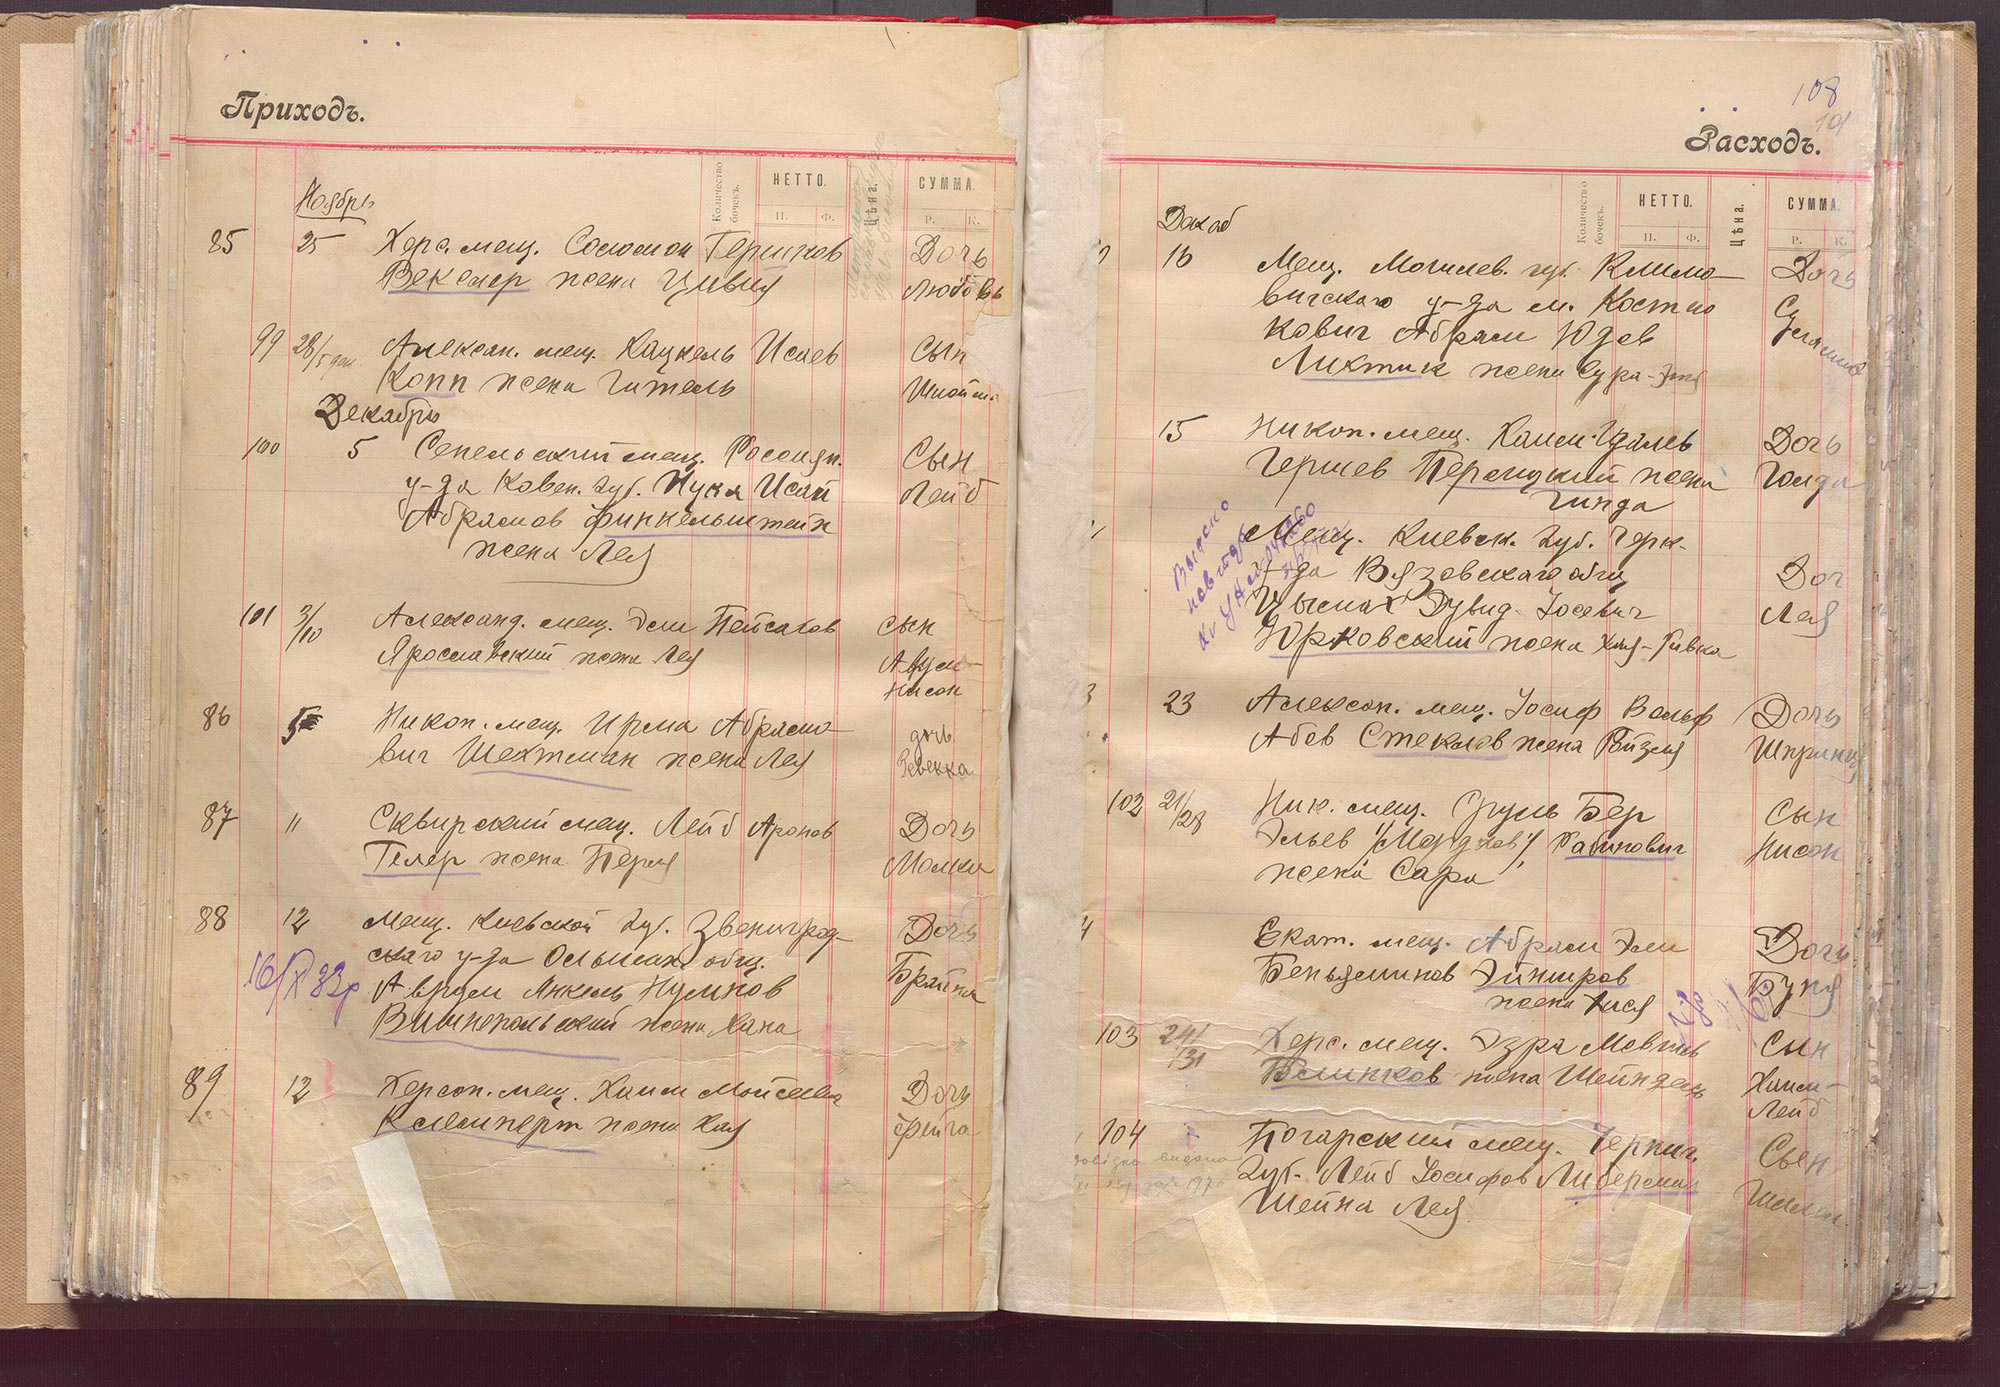 Приходъ.
Количество бочекъ.
НЕТТО.
П. Ф.
Цѣна.
СУММА.
Р. К.
Ноябрь
85 25 Херс. мещ. Соломон Гершков Дочь
Векслер жена Цивья Любовь
99 28/5 дек. Алексан. мещ. Кацкель Исаев Сын
Копп жена Гитель
Декабрь
100 5 мещ. Россиян. Сын
у-да Ковен. губ. Исаи Лейб
Абрамов Финкельштейн
жена Лея
101 3/10 Александ. мещ. Эли Пейсахов Сын
Ярославский жена Лея Аврум-
Нисон
86 5 Никоп. мещ. Ирма Абрамо-
вич Шехтман жена Лея дочь
Ревекка
87 11 Сквирский мещ. Лейб Аронов Дочь
Гелер жена Перля Малка
88 12 Мещ. Киевской губ. Звенигрод- Дочь
скаго у-да общ.
Аврум Янкель Нухимов Брайна
Вишнепольский жена Хана
89 12 Херсон. мещ. Хаим Мойсеев Дочь
жена Хая Фейга
108
101
Расходъ.
Количество бочекъ.
НЕТТО.
П. Ф.
Цѣна.
СУММА.
Р. К.
Декаб
10 Мещ. Могилев. губ. Климо- Дочь
вичскаго у-да м. Костю
кович Абрам Юдев
Ликтик жена Сура-
15 Никоп. мещ. Хаим Дочь
Гершев жена Голда
Гинда
Мещ. Киевск. губ. Черк-
у-да Вязовскаго общ Доч
Дувид Иосевич Лея
Юрковский жена Хая-Ривка
23 Алексан. мещ. Иосиф Вольф Дочь
Абов Стеклов жена Рейзя Шпринц
102 21/28 Ник. мещ. Сруль Бер Сын
Эльев /Мордков/ Рабинович Нисон
жена Сара
Екат. мещ. Абрам Эли Дочь
Беньяминов Эйнгиров Буня
жена Хася
103 24/31 Херс. мещ. Эзра Мовшев Сын
жена Шейндель Хаим-
Лейб
104 Погарский мещ. Черниг. Сын
губ. Лейб Иосифов Либерман
Шейна Лея